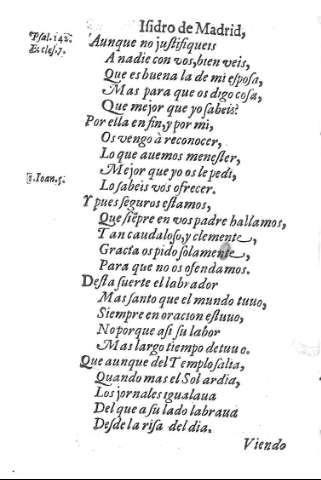 Isidro de Madrid,
Psal. 142.
Eclес. 7.
Aunque no justifiqueis
A nadie con vos, bien veis,
Que es buena la de mi esposa,
Mas para que os digo cosa,
Que mejor que yo sabeis?
Por ella en fin, y por mi,
Os vengo à reconocer,
Lo que auemos menester,
1. Ioan. 5.
Mejor que yo os le pedi,
Lo sabeis vòs ofrecer.
Y pues seguros estamos,
Que siẽpre en vos padre hallamos,
Tan caudaloso, y clemente,
Gracia os pido solamente,
Para que no os ofendamos.
Desta suerte el labrador
Mas santo que el mundo tuuo,
Siempre en oracion estuuo,
No porque asi su labor
Mas largo tiempo detuuo.
Que aunque del Templo salta,
Quando mas el Sol ardia,
Los jornales igualaua
Del que a su lado labraua
Desde la risa del dia.
Viendo